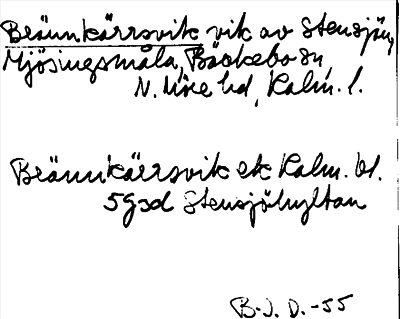 Brännkärrsvik vik av Stensjön,
Mjösingsmåla, Bäckebo sn,
N. Möre hd, Kalm. l.
Brännkärrsvik ek Kalm. bl.
5 Gsd Stensjöhyltan
B.J. D. -55